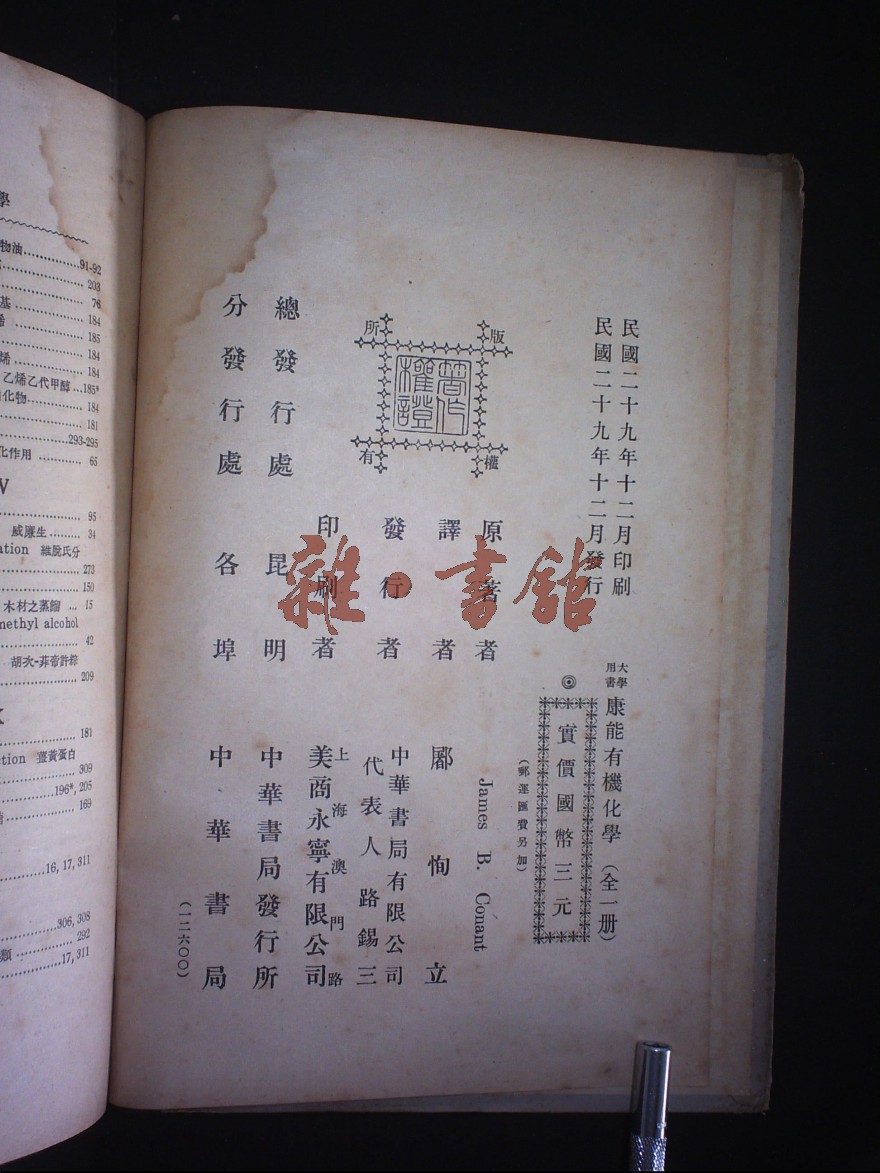 民國二十九年十二月印刷
民國二十九年十二月發行
大學用書
康能有機化學（全一册）
◎
實價國幣三元
（郵運匯費另加）
原著者 James B. Conant
譯者 郿恂立
發行者 中華書局有限公司
代表人路錫三
印刷者 上海澳門路
美商永寧有限公司
總發行處 昆明 中華書局發行所
分發行處 各埠 中華書局
（一二六〇〇）
版權所有
著作權證
雜·書館
學
物油 91-92
203
基 76
烯 184
185
184
烯 184
乙烯乙代甲醇 185*
化物 184
181
293-295
化作用 65
V
95
威廉生 34
ation 維脫氏分
273
150
木材之蒸餾 15
methyl alcohol
42
胡次-菲帝許綜
209
X
181
ction 薑黃蛋白
309
196*, 205
169
16, 17, 311
306, 308
類 292
17, 311